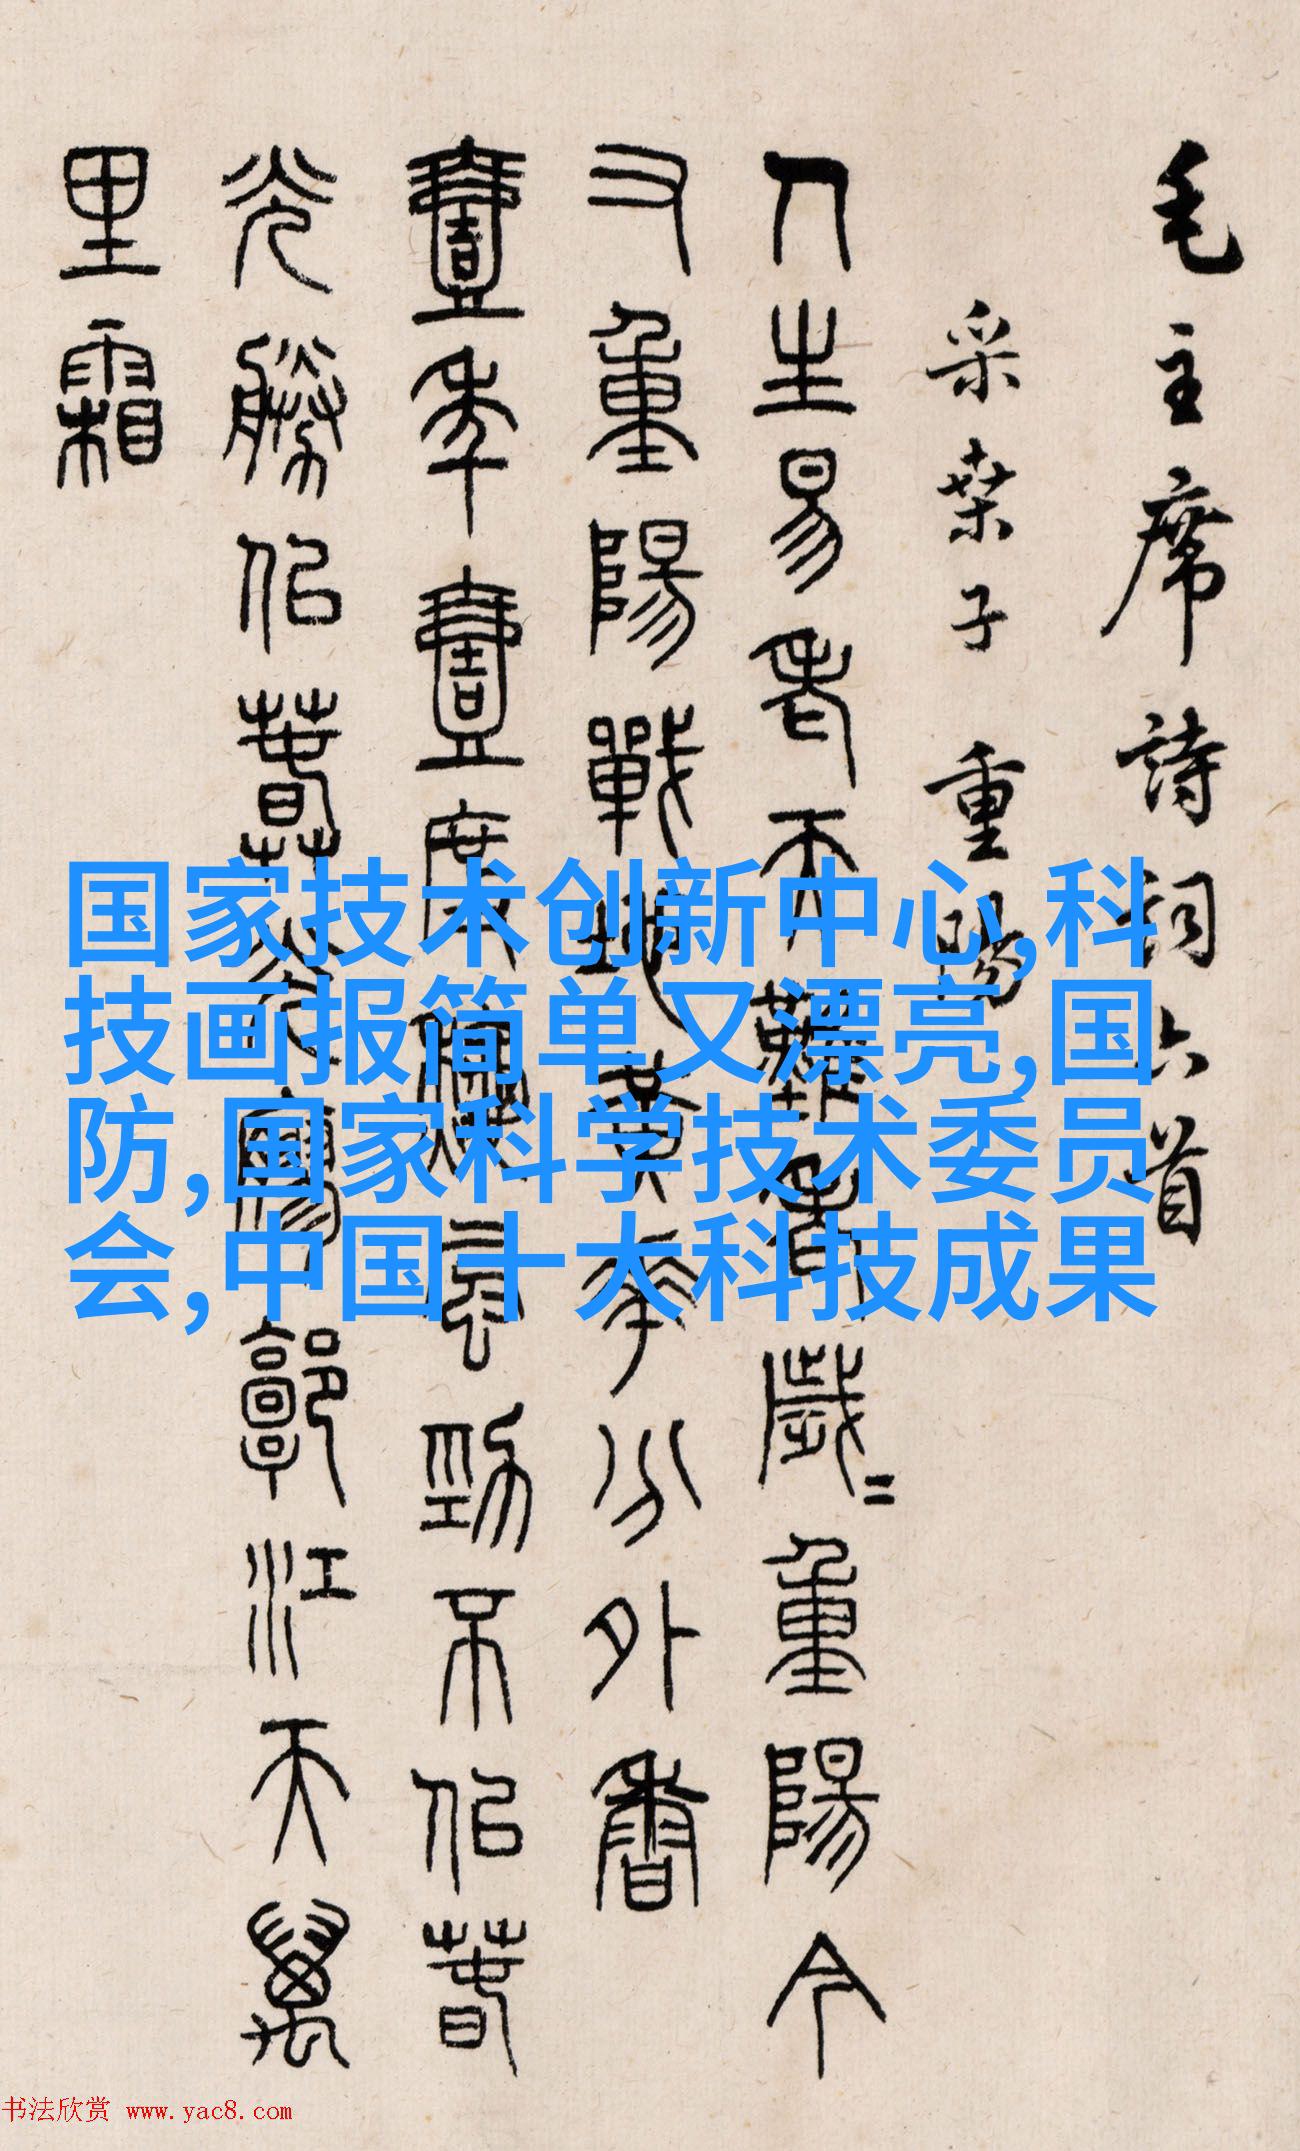 毛主席詩詞六首
采桑子 重陽
人生易老天難老歲〻重陽今
又重陽戰地黃華分外香
壹年壹度秋風勁不似春
光勝似春光寥郭江天萬
里霜
国家技术创新中心,科
技画报简单又漂亮,国
防,国家科学技术委员
会,中国十大科技成果
书法欣赏 www.yac8.com